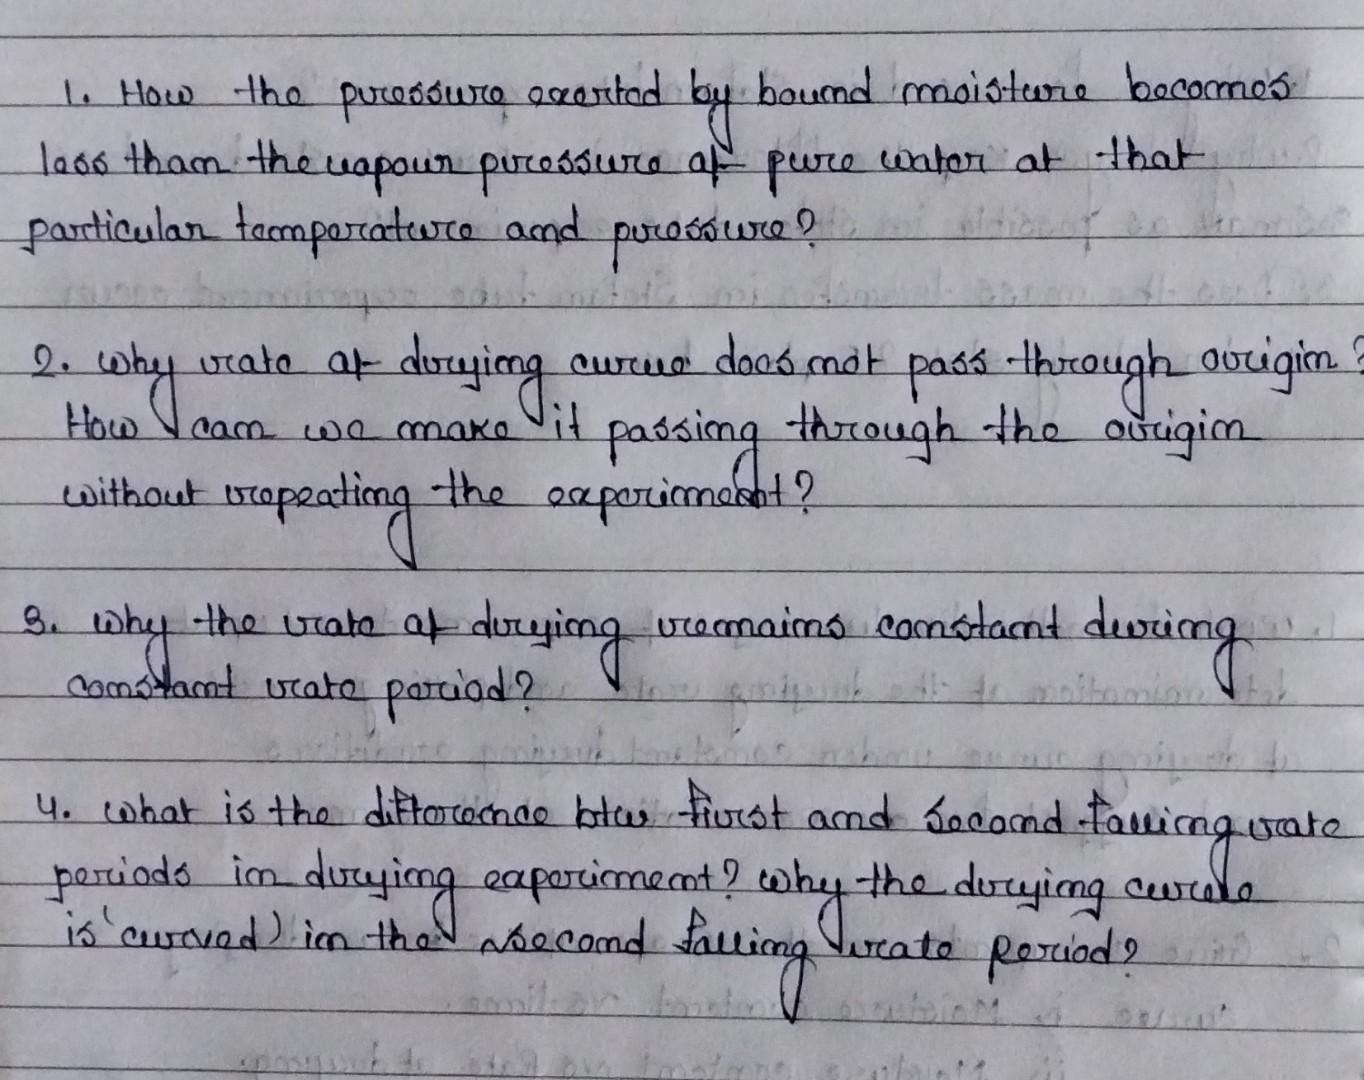 1. How the pressure exerted by bound moisture becomes
less than the vapour pressure of pure water at that
particular temperature and pressure?
2. Why rate of drying curve does not pass through origin?
How can we make it passing through the origin
without repeating the experiment?
3. Why the rate of drying remains constant during
constant rate period?
4. What is the difference btw first and second falling rate
periods in drying experiment? Why the drying curve
is 'curved' in the second falling rate period?